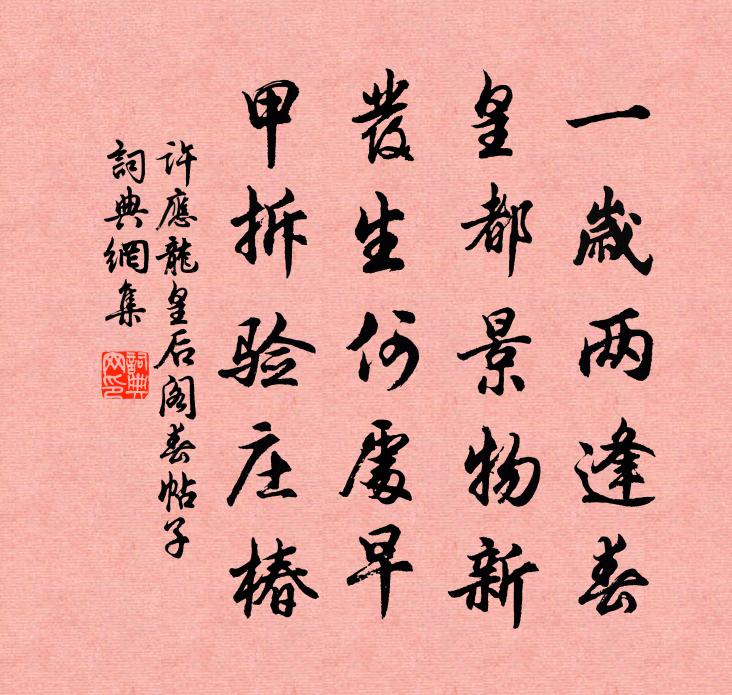 一歲两逢春
皇都景物新
發生何處早
甲拆验庄椿
許應龍皇后阁春帖子
詞典網集
詞典网印